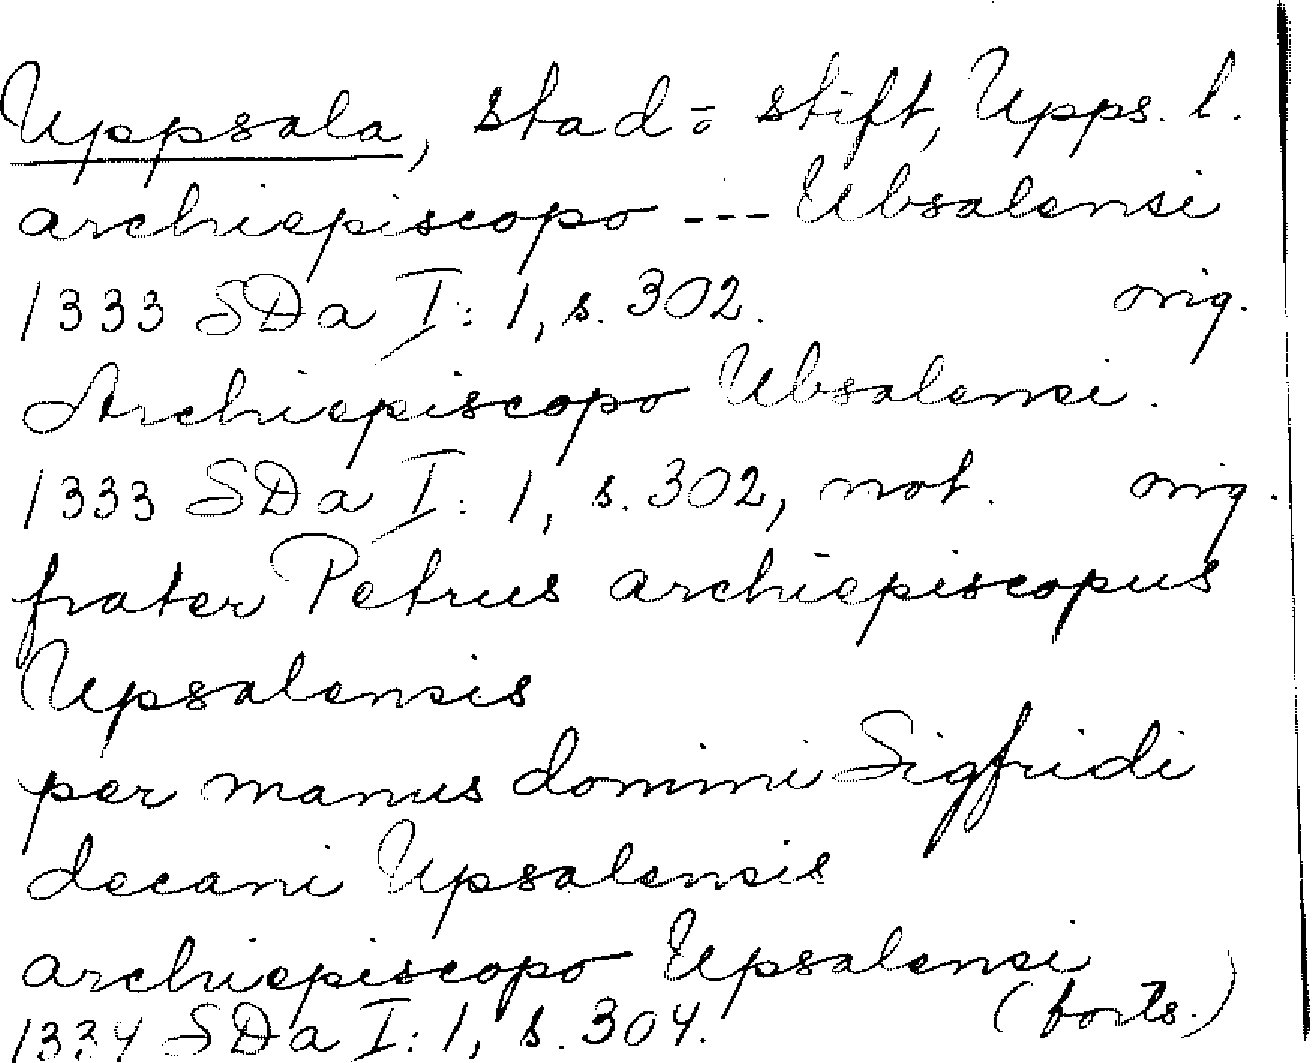 Uppsala, stad o. stift, Upps. l.
archiepiscopo --- Ubsalensi
1333 SDa I: 1, s. 302. orig.
Archiepiscopo Ubsalensi.
1333 SDa I: 1, s. 302, not. orig.
frater Petrus archiepiscopus
Upsalensis
per manus domini Sigfridi
decani Upsalensis
archiepiscopo Upsalensi
1334 SDa I: 1, s. 304. (forts.)